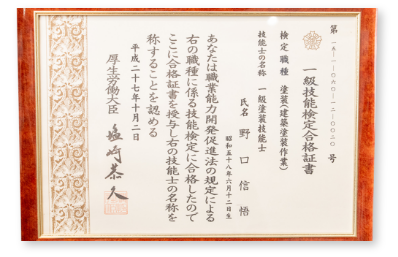 第一五-一-〇六〇-一二-〇〇二〇号
一級技能検定合格証書
検定職種 塗装(建築塗装作業)
技能士の名称 一級塗装技能士
氏名 野口信悟
昭和五十八年六月十二日生
あなたは職業能力開発促進法の規定による
右の職種に係る技能検定に合格したので
ここに合格証書を授与し右の技能士の名称を
称することを認める
平成二十七年十月二日
厚生労働大臣 塩崎恭久